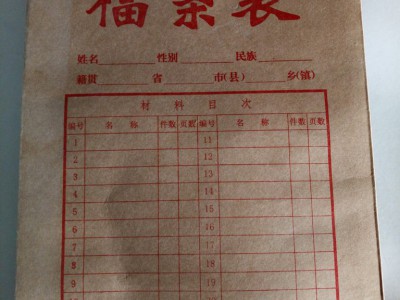 檔案袋
姓名 性别 民族
籍贯 省 市(县) 乡(镇)
材料目次
编号 名称 件数 页数 编号 名称 件数 页数
1 11
2 12
3 13
4 14
5 15
6 16
7 17
8 18
9 19